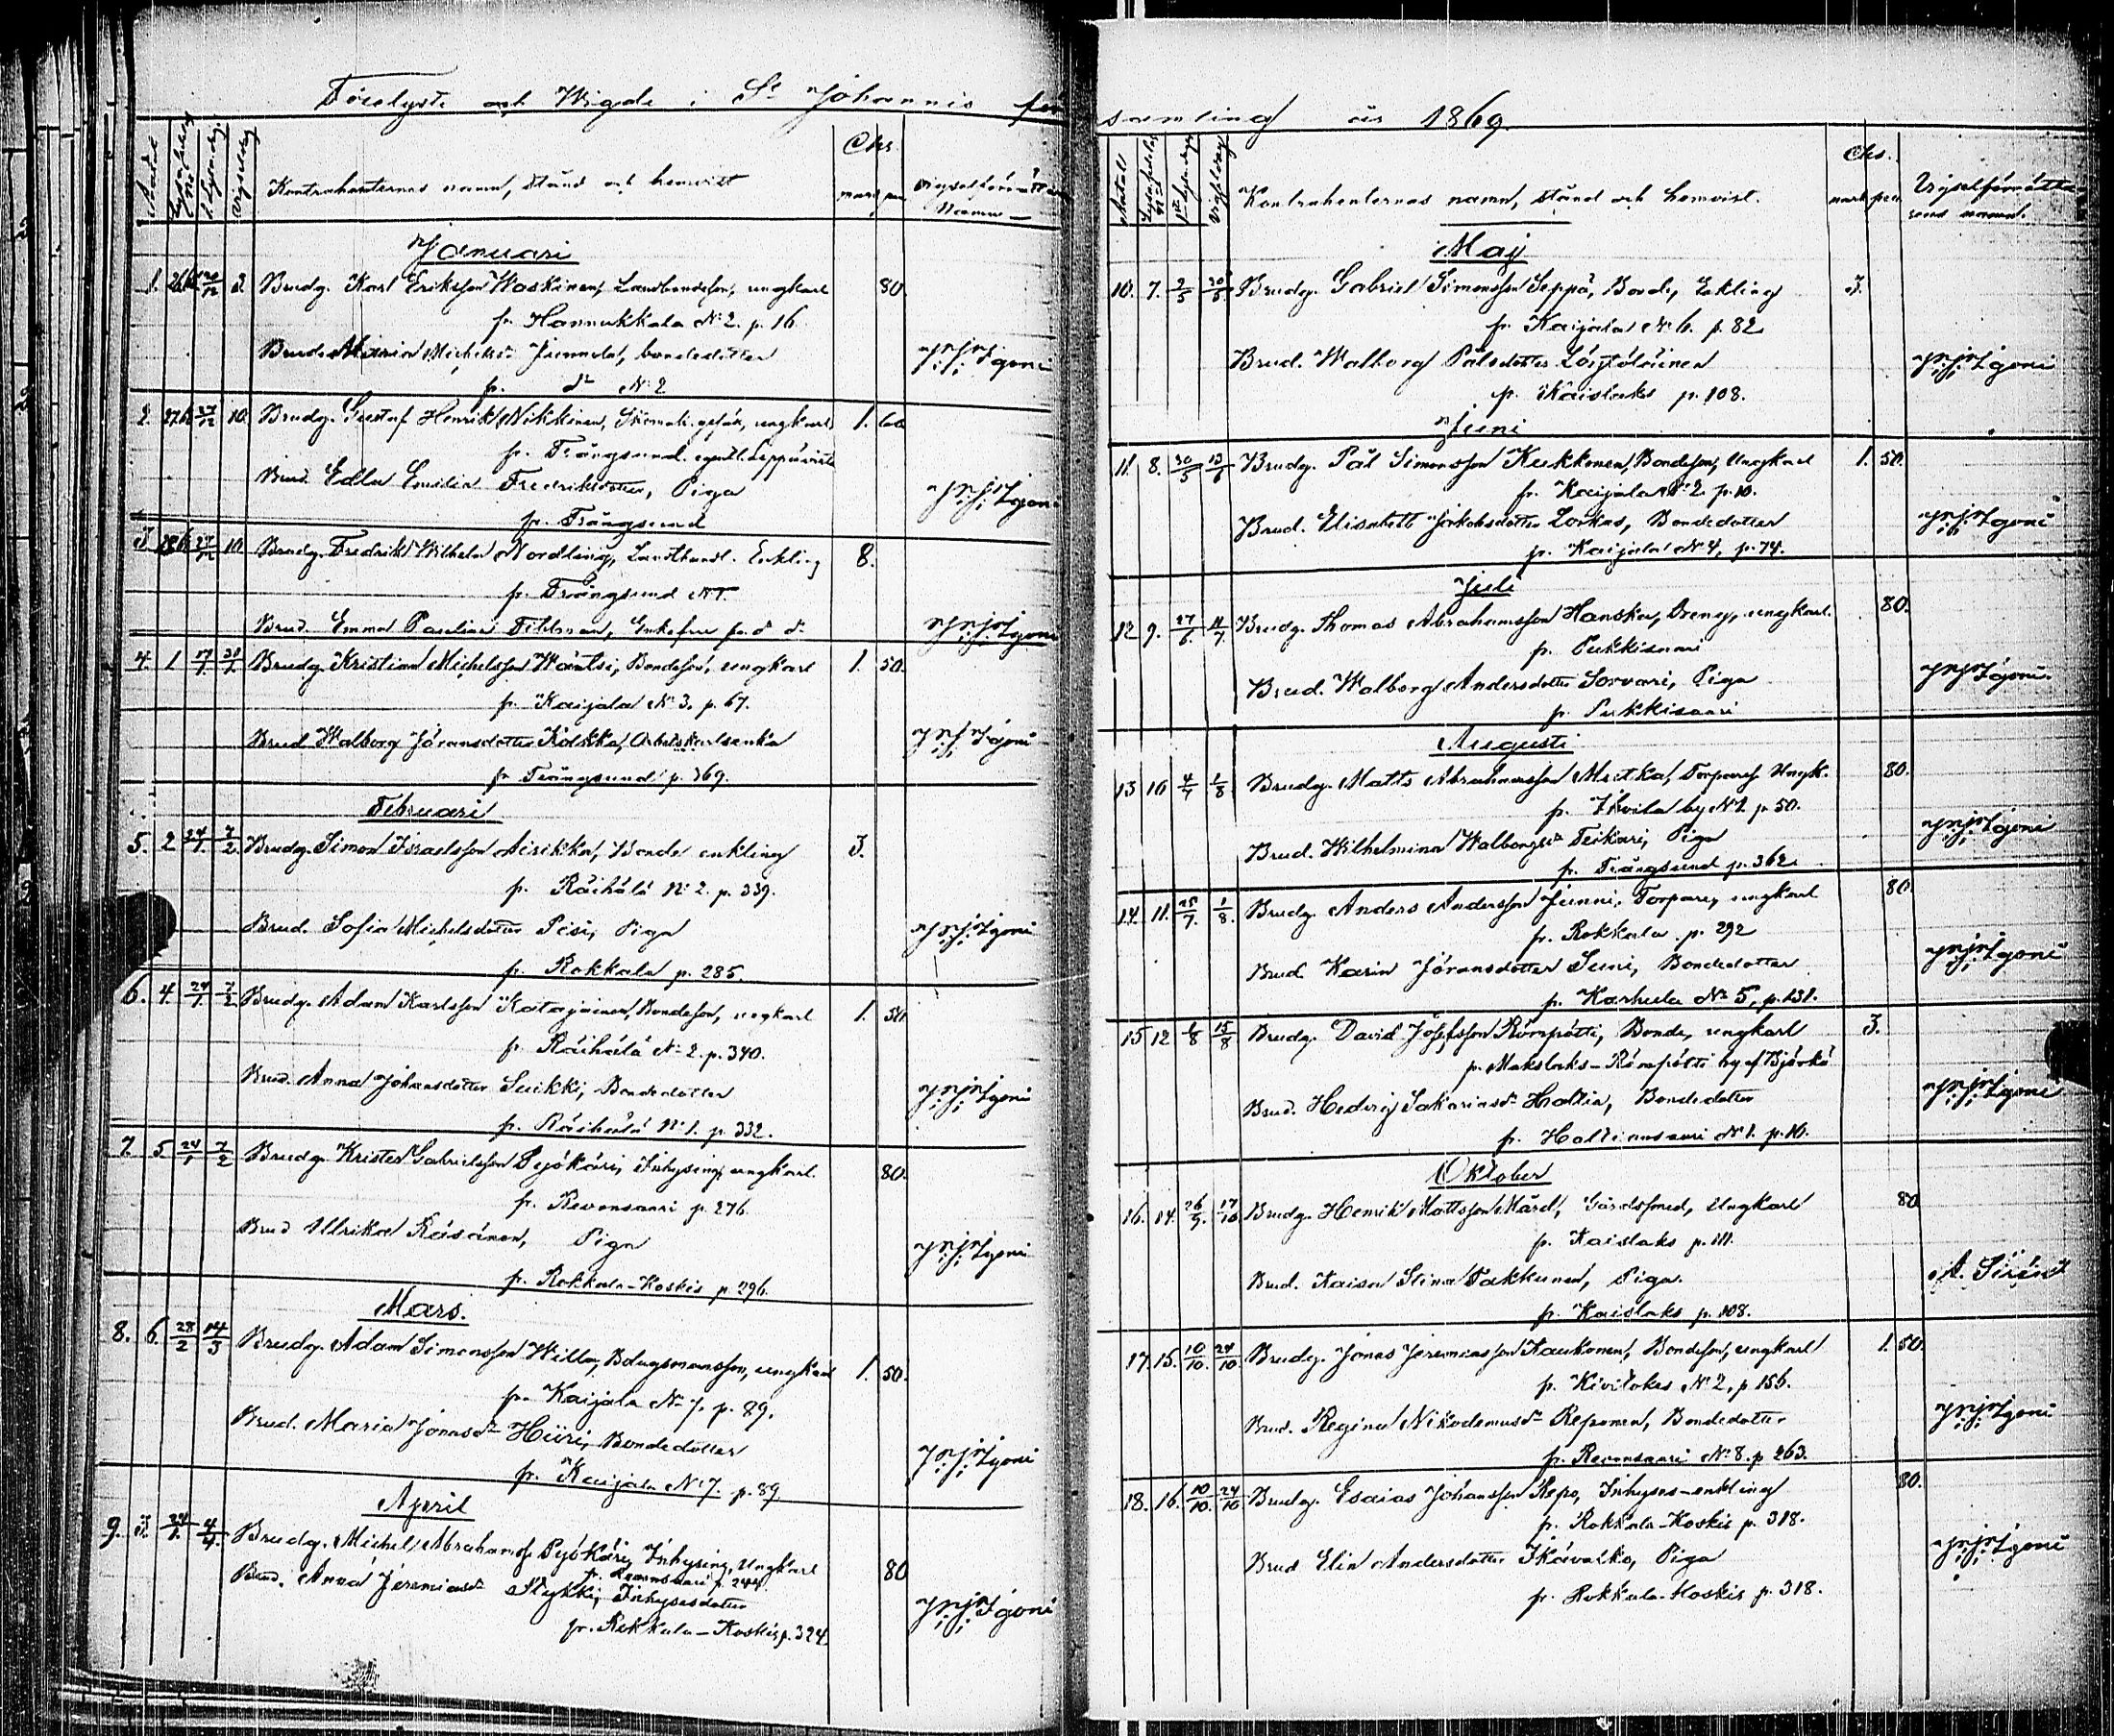 Förelyste och Wigde i St Johannis för
Antal
Kontrahenternas namn, stånd och hemvist
Chs.
mark pen.
namn
Januari
1. 3. Brudg. Karl Eriksson Waskinen, Landbondeson, ungkarl 80.
fr. Hannukkala No 2. p. 16.
Brud. Maria Michelsdr Junnela, bondedotter
fr. do No 2
2. 27/12 10. Brudg. Gustaf Henrik Nikkinen, ungkarl 1. 60
fr. Trångsund.
Brud Edla Emilia Fredriksdotter, Piga
fr. Trångsund
3. 27/12 10. Brudg. Fredrik Wilhelm Nordling, Enkling 8.
fr. Trångsund
Brud. Emma Paulina Enkefru fr. d d.
4. 1 17/1 31/1 Brudg. Kristian Michelsson Wäntsi, Bondeson, ungkarl 1. 50.
fr. Kaijala No 3. p. 67.
Brud Walborg Jöransdotter Kokka, Arbetskarlsenka
fr. Trångsund p. 369.
Februari
5. 2 24/1 7/2 Brudg. Simon Israelsson Airikka, Bonde enkling 3.
fr. Räihälä No 2. p. 339.
Brud. Sofia Michelsdotter Pisi, Piga
fr. Rokkala p. 285.
6. 4. 24/1 7/2 Brudg. Adam Karlsson Katajainen, Bondeson, ungkarl 1. 50.
fr. Räihälä No 2. p. 340.
Brud. Anna Johansdotter Suikki, Bondedotter
fr. Räihälä No 1. p. 332.
7. 5 24/1 7/2 Brudg. Krister Gabrielsson Pejökäri, Inhysing, ungkarl. 80.
fr. Revonsaari p. 276.
Brud Ulrika Räsänen, Piga
fr. Rokkala-Koskis p. 296.
Mars.
8. 6. 28/2 14/3 Brudg. Adam Simonsson Willa, ungkarl 1. 50.
fr. Kaijala No 7. p. 89.
Brud. Maria Jonasdr Hiiri, Bondedotter
fr. Kaijala No 7. p. 89.
April
9. 3. 24/1. 4/4. Brudg. Michel Abrahamss. Pejökäri, Inhysing, Ungkarl 80
fr. Revonsaari p. 244.
Brud. Anna Jeremiasdr Stykki, Inhysesdotter
fr. Rokkala-Koskis p. 324.
samling år 1869.
Antal
Kontrahenternas namn, stånd och hemvist.
Chs.
mark pen.
Vigselförrätta-
rens namn.
Maj
10. 7. 2/5 Brudg. Gabriel Simonsson Seppä, Bonde, Enkling 3.
fr. Kaijala No 6. p. 82
Brud. Walborg Pålsdotter
fr. Kaislaks p. 108.
Juni
11. 8. 30/5 13/6 Brudg. Pål Simonsson Kukkonen, Bondeson, Ungkarl 1. 50.
fr. Kaijala No 2. p. 10.
Brud. Elisabeth Jakobsdotter Lonkas, Bondedotter
fr. Kaijala No 4, p. 74.
Juli
12 9. 27/6. 11/7. Brudg. Thomas Abrahamsson Hanska, Dreng, ungkarl. 80.
fr. Pukkisaari
Brud. Walborg Andersdotter Sorvari, Piga
fr. Pukkisaari
Augusti
13 10 4/7 1/8 Brudg. Matts Abrahamsson Mutka, Torpares. Ungk. 80.
by No 2. p. 50.
Brud. Wilhelmina Walborgsdr Teikari, Piga
fr. Trångsund p. 362.
14. 11. 25/7. 1/8. Brudg. Anders Andersson Junni, Torpare, ungkarl 80.
fr. Rokkala p. 292
Brud Karin Jöransdotter Suni, Bondedotter
fr. Karhula No 5, p. 131.
15 12 15/8 Brudg. David Josefsson Römpötti, Bonde, ungkarl 3.
fr. Makslaks-Römpötti by af Björkö
Brud. Hedvig Sakariasdr Haltia, Bondedotter
fr. Haltiansaari No 1. p. 10.
Oktober
16. 14. 26/9. 17/10 Brudg. Henrik Mattsson Mård, Gårdssmed, Ungkarl 80
fr. Kaislaks p. 111.
Brud. Kaisa Stina Pakkunen, Piga.
fr. Kaislaks p. 108.
A. Sirén
17. 15. 10/10. 24/10 Brudg. Jonas Jeremiasson Kaukonen, Bondeson, ungkarl 1. 50.
fr. Kivilokes No 2, p. 156.
Brud. Regina Nikodemusdr Reponen, Bondedotter
fr. Revonsaari No 8. p. 263.
18. 16. 10/10. 24/10 Brudg. Esaias Johansson Repo, Inhyses-enkling 80.
fr. Rokkala-Koskis p. 318.
Brud Elin Andersdotter Ikävalko, Piga
fr. Rokkala-Koskis p. 318.